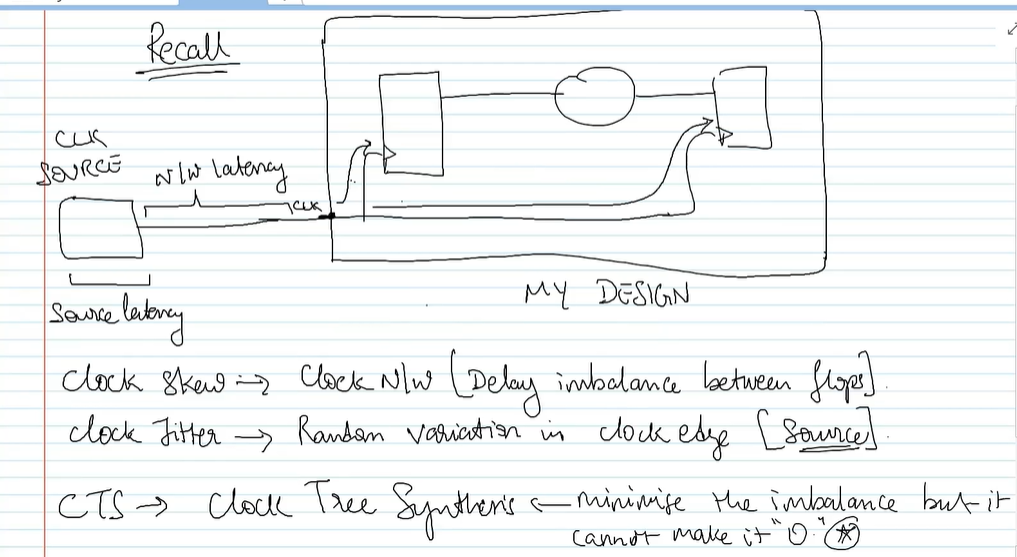 Recall
CLK
SOURCE
N/W latency
CLK
Source latency
MY DESIGN
Clock Skew → Clock N/W [Delay imbalance between flops].
Clock Jitter → Random variation in clock edge [Source].
CTS → Clock Tree Synthesis ← minimise the imbalance but it
cannot make it "0."